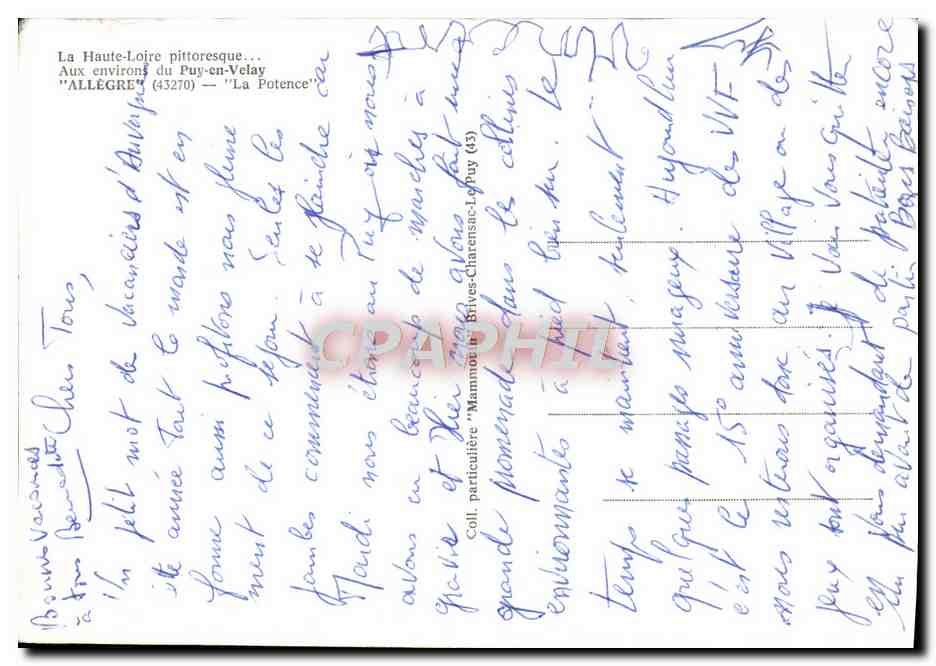 La Haute-Loire pittoresque...
Aux environs du Puy-en-Velay
"ALLÈGRE" (43270) — "La Potence"
Coll. particulière "Mammouth" Brives-Charensac-Le Puy (43)
CPAPHIL
Bonnes Vacances
à tous Bernadette
Chers Tous,
Un petit mot de vacanciers d'Auvergne
cette année Tout le monde est en
forme aussi profitons nous pleine
ment de ce séjour. Seules les
jambes commencent à se plaindre car
Mardi nous étions au Puy où nous
avons eu beaucoup de marches à
gravir et Hier nous avons fait une
grande promenade dans les collines
environnantes à pied bien sur. Le
temps se maintient seulement
quelques passages nuageux. Aujourd'hui
c'est le 15° anniversaire des VVF
nous resterons donc au village où des
jeux sont organisés. Je vais vous quitter
en vous demandant de patienter encore
un peu avant de partir Bises Baisers